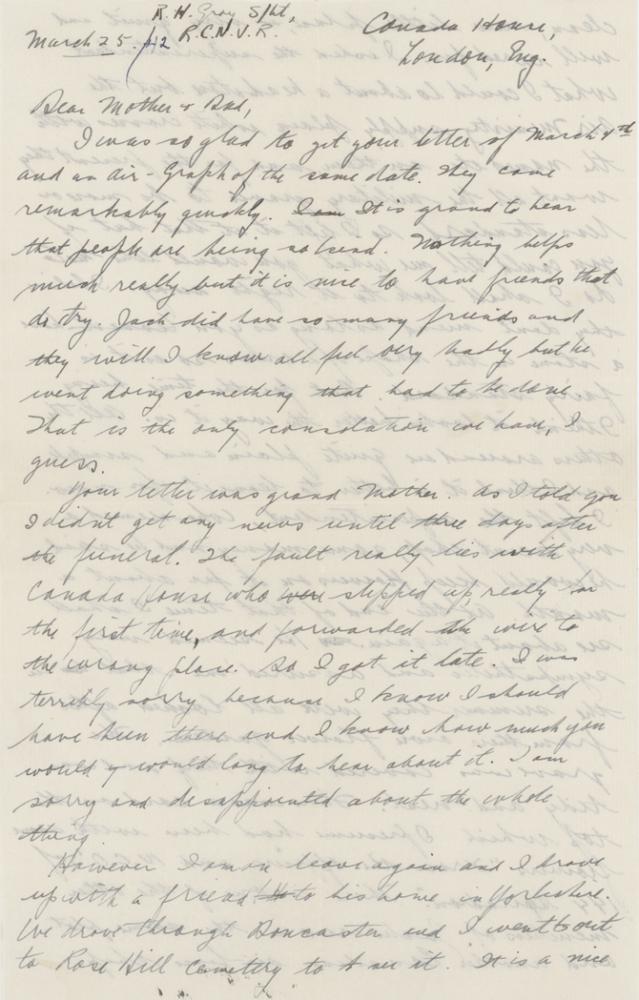 R. H. Gray S/Lt,
R.C.N.V.R.
March 25 /42
Canada House,
London, Eng.
Dear Mother & Dad,
I was so glad to get your letter of March 4th
and an air-Graph of the same date. They came
remarkably quickly. I am It is grand to hear
that people are being so kind. Nothing helps
much really but it is nice to have friends that
do try. Jack did have so many friends and
they will I know all feel very badly but he
went doing something that had to be done.
That is the only consolation we have, I
guess.
Your letter was grand Mother. As I told you
I didn't get any news until three days after
the funeral. The fault really lies with
Canada House who were slipped up, really for
the first time, and forwarded the wire to
the wrong place. So I got it late. I was
terribly sorry because I know I should
have been there and I know how much you
would y would long to hear about it. I am
sorry and disappointed about the whole
thing.
However I am on leave again and I drove
up with a friend to his home in Yorkshire.
We drove through Doncaster and I went out
to Rose Hill Cemetery to see it. It is a nice